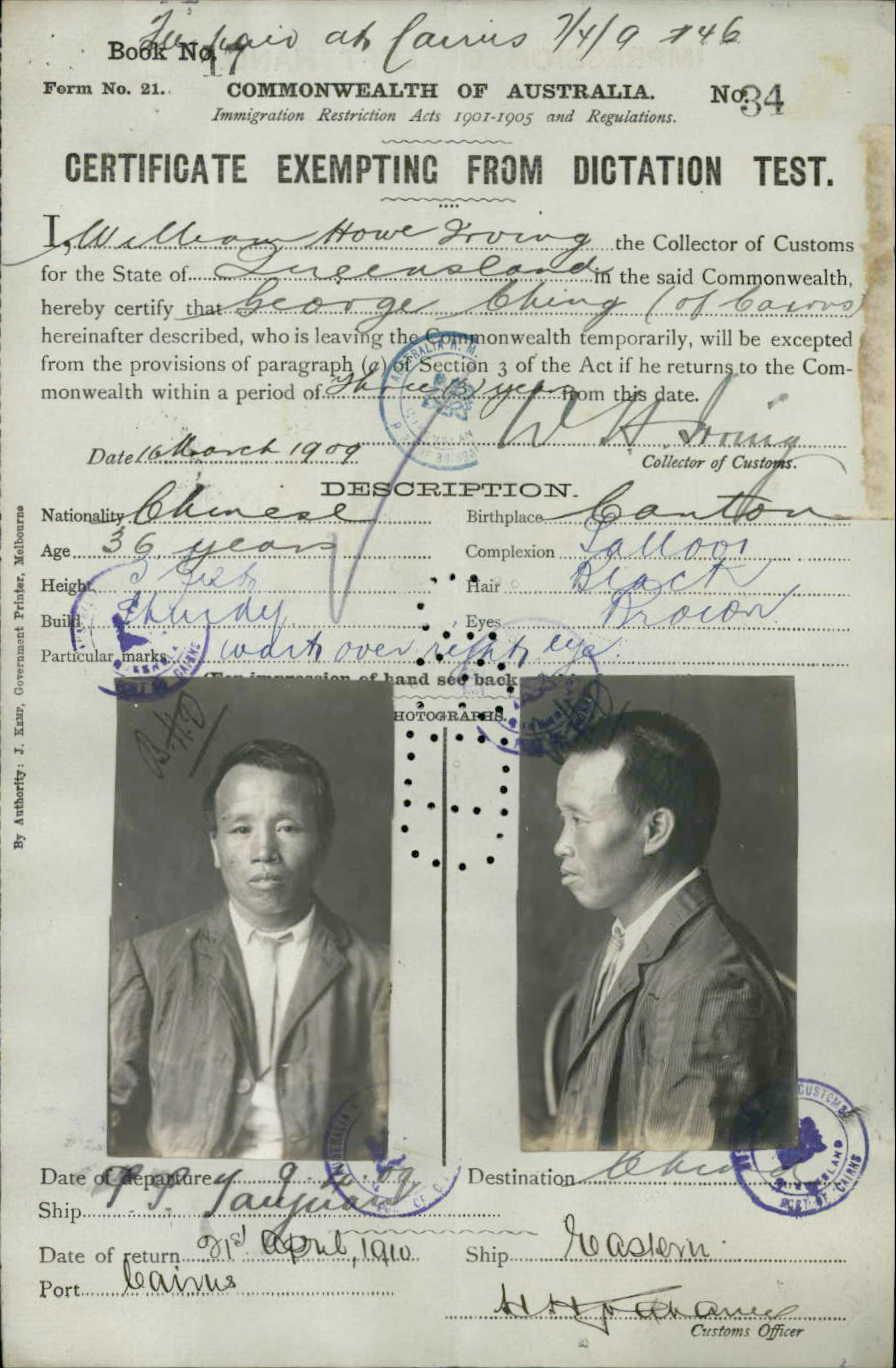 paid at Cairns 7/4/9 #46
Book No. 17
Form No. 21. COMMONWEALTH OF AUSTRALIA. No. 34
Immigration Restriction Acts 1901-1905 and Regulations.
CERTIFICATE EXEMPTING FROM DICTATION TEST.
I, William Howe Irving the Collector of Customs
for the State of Queensland in the said Commonwealth,
hereby certify that George Ching (of Cairns)
hereinafter described, who is leaving the Commonwealth temporarily, will be excepted
from the provisions of paragraph (a) of Section 3 of the Act if he returns to the Com-
monwealth within a period of Three (3) years from this date.
W H Irving
Date 16 March 1909
Collector of Customs.
DESCRIPTION.
Nationality Chinese Birthplace Canton
Age 36 years Complexion Sallow
Height 5 feet Hair Black
Build Sturdy Eyes Brown
Particular marks wart over right eye.
(For impression of hand see back
PHOTOGRAPHS.
By Authority: J. Kemp, Government Printer, Melbourne
CUSTOMS
QUEENSLAND
PORT OF CAIRNS
Date of departure 9 4 09 Destination China
Ship Taiyuan
Date of return 21st April, 1910 Ship Eastern
Port Cairns
Customs Officer